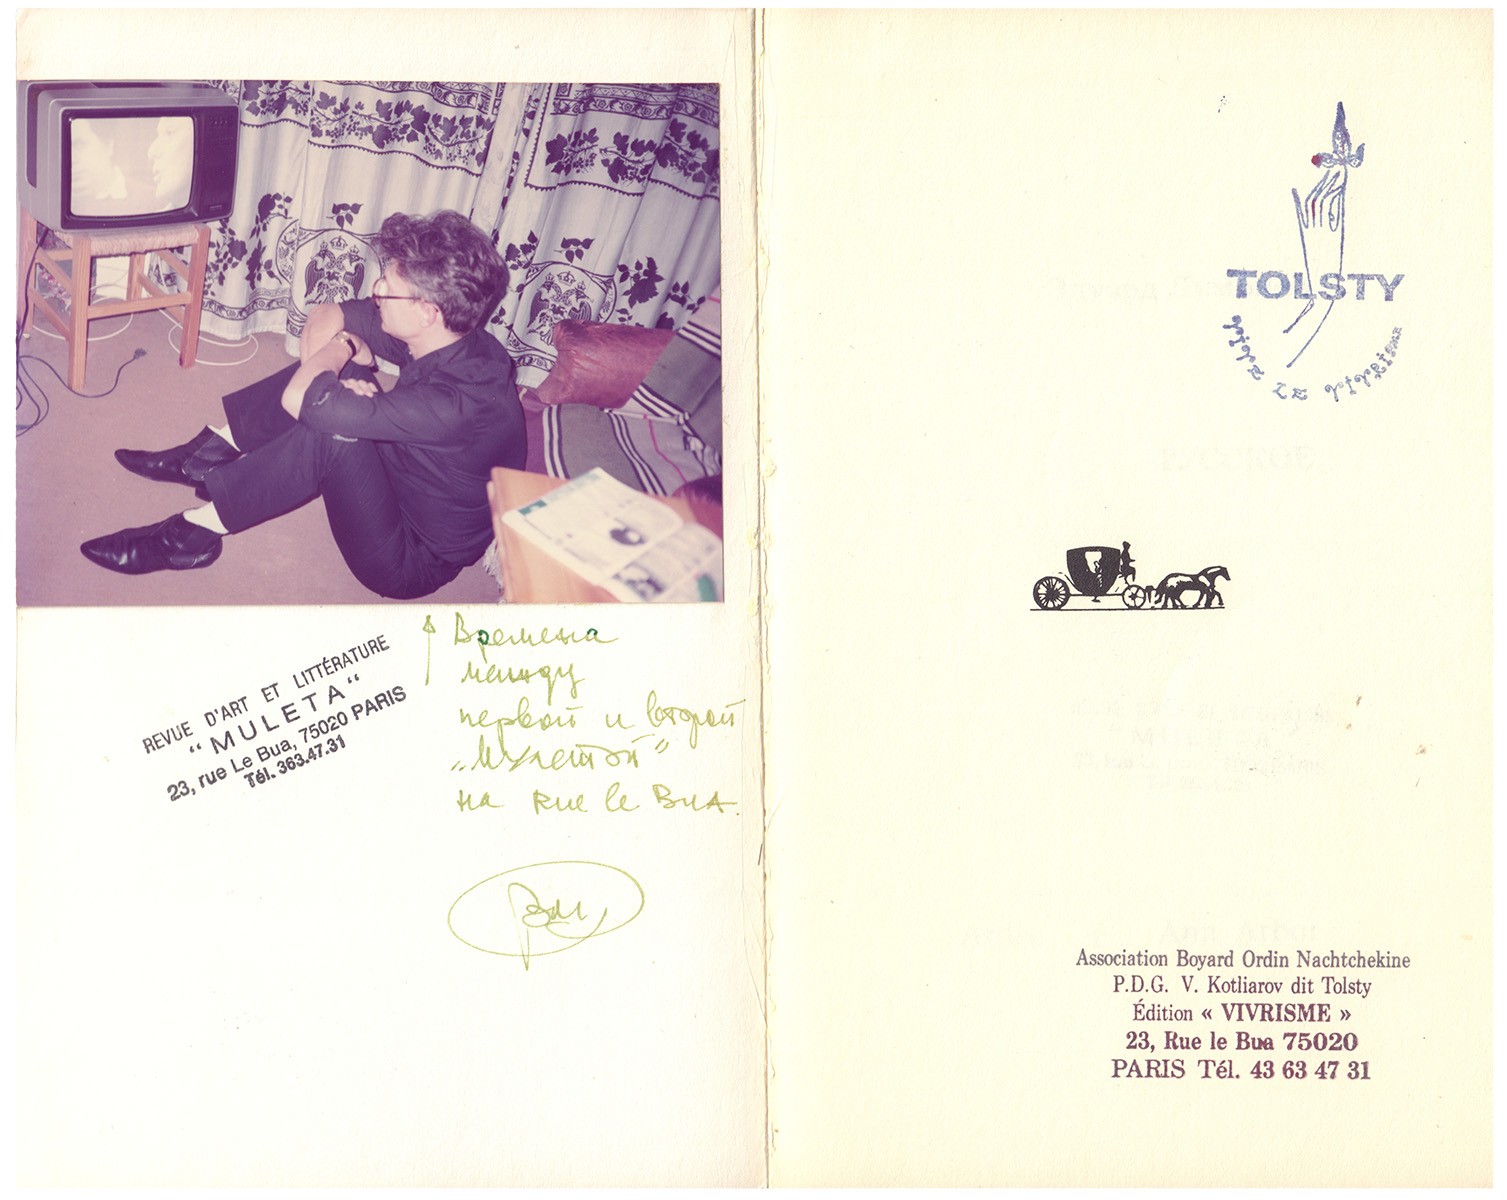 REVUE D'ART ET LITTÉRATURE
“MULETA“
23, rue Le Bua, 75020 PARIS
Tél. 363.47.31
Времена
между
первой и второй
„Мулетой”
на Rue le Bua
TOLSTY
vivre le vivrisme
Association Boyard Ordin Nachtchekine
P.D.G. V. Kotliarov dit Tolsty
Édition « VIVRISME »
23, Rue le Bua 75020
PARIS Tél. 43 63 47 31